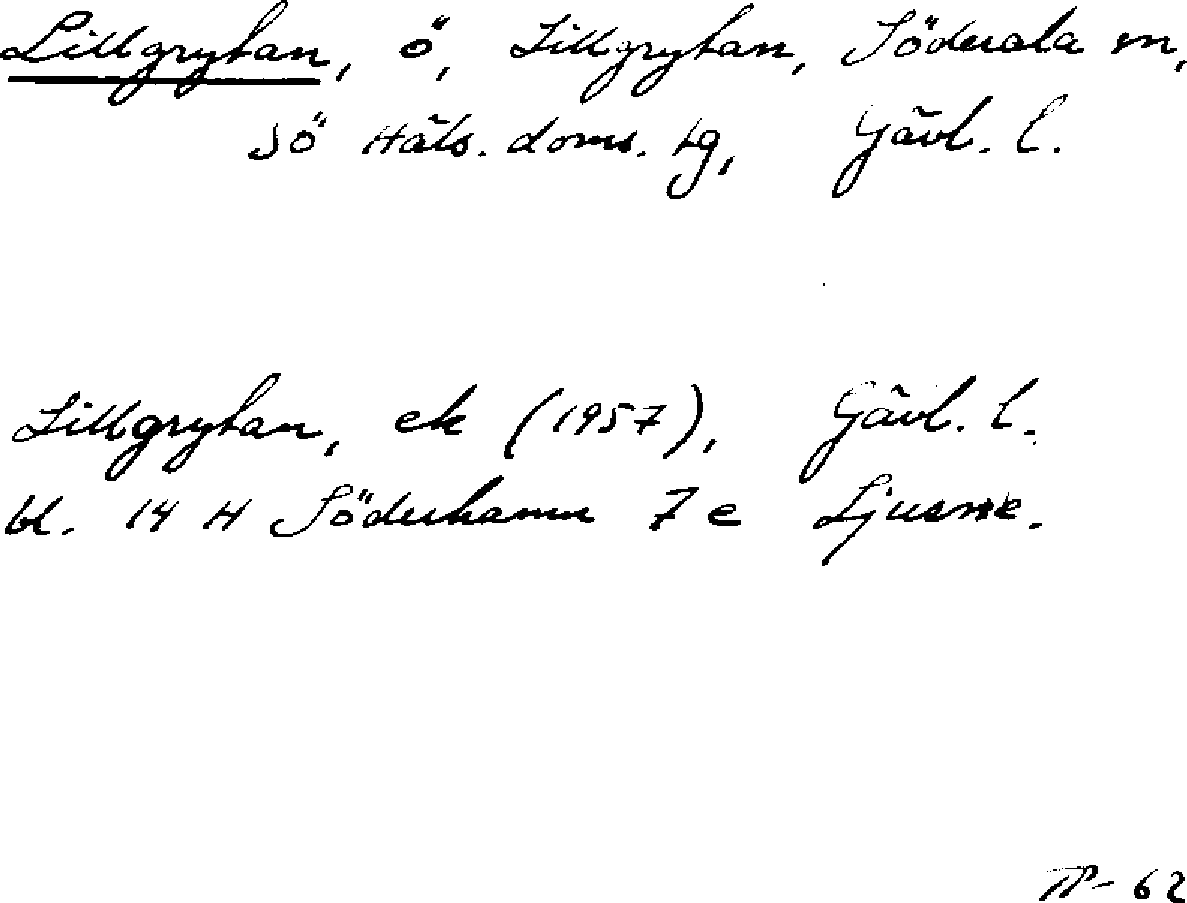 Lillgrytan, ö, Lillgrytan, Söderala sn,
Sö Häls. doms. tg, Gävl. l.
Lillgrytan, ek (1957), Gävl. l.
bl. 14 H Söderhamn 7 e Ljusne.
-62